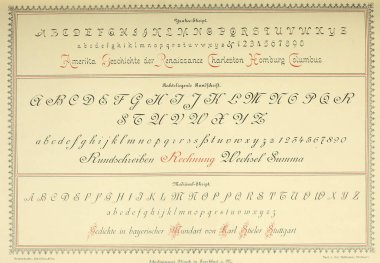 ABCDEFGHIJKLMNOPQRSTUVWXYZ
abcdefghijklmnopqrstuvwxyz &1234567890
Amerika Geschichte der Renaissance Charleston Homburg Columbus
Rechtslaufende Rundschrift.
ABCDEFGHIJKLMNOPQR
STUVWXYZ
abcdefghijklmnopqrsßtuvwxyz 1234567890
Rundschreiben Rechnung Wechsel Summa
Medieval-Script.
ABCDEFGHIJKLMNOPQRSTUVWXYZ
abcdefghijklmnopqrstuvwxyz
Gedichte in bayerischer Mundart von Karl Stieler Stuttgart